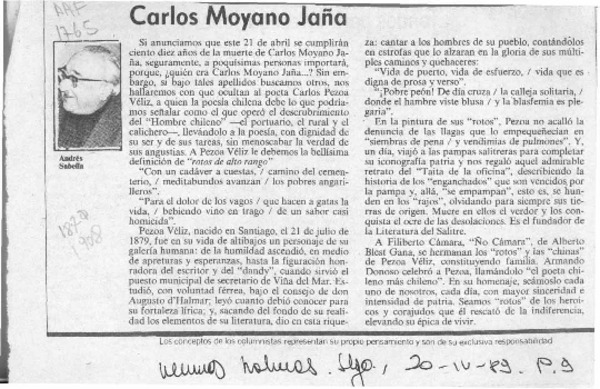 AAF
1765
Carlos Moyano Jaña
Andrés
Sabella
1879
1908
Si anunciamos que este 21 de abril se cumplirán
ciento diez años de la muerte de Carlos Moyano Ja-
ña, seguramente, a poquísimas personas importará,
porque, ¿quién era Carlos Moyano Jaña...? Sin em-
bargo, si bajo tales apellidos buscamos otros, nos
hallaremos con que ocultan al poeta Carlos Pezoa
Véliz, a quien la poesía chilena debe lo que podría-
mos señalar como el que operó el descubrimiento
del "Hombre chileno" —el portuario, el rural y el
calichero—, llevándolo a la poesía, con dignidad de
su ser y de sus tareas, sin menoscabar la verdad de
sus angustias. A Pezoa Véliz le debemos la bellísima
definición de "rotos de alto rango"
"Con un cadáver a cuestas, / camino del cemen-
terio, / meditabundos avanzan / los pobres angari-
lleros".
"Para el dolor de los vagos / que hacen a gatas la
vida, / bebiendo vino en trago / de un sabor casi
homicida".
Pezoa Véliz, nacido en Santiago, el 21 de julio de
1879, fue en su vida de altibajos un personaje de su
galería humana: de la humildad ascendió, en medio
de aperturas y esperanzas, hasta la figuración hon-
radora del escritor y del "dandy", cuando sirvió el
puesto municipal de secretario de Viña del Mar. Es-
tudió, con voluntad férrea, bajo el consejo de don
Augusto d'Halmar; leyó cuanto debió conocer para
su fortaleza lírica; y, sacando del fondo de su realidad
los elementos de su literatura, dio en esta rique-
za: cantar a los hombres de su pueblo, contándolos
en estrofas que lo alzaran en la gloria de sus múl-
tiples caminos y quehaceres:
"Vida de puerto, vida de esfuerzo, / vida que es
digna de prosa y verso".
"¡Pobre peón! De día cruza / la calleja solitaria, /
donde el hombre viste blusa / y la blasfemia es ple-
garia".
En la pintura de sus "rotos", Pezoa no acalló la
denuncia de las llagas que lo empequeñecían en
"siembras de pena / y vendimias de pulmones". Y,
un día, viajó a las pampas salitreras para completar
su iconografía patria y nos regaló aquel admirable
retrato del "Taita de la oficina", describiendo la
historia de los "enganchados" que son vencidos por
la pampa y, allá, "se empampan", esto es, se hun-
den en los "rajos", olvidando para siempre sus tie-
rras de origen. Muere en ellos el verdor y los con-
quista el ocre de las desolaciones. Es el fundador de
la Literatura del Salitre.
A Filiberto Cámara, "Ño Cámara", de Alberto
Blest Gana, se hermanan los "rotos" y las "chinas"
de Pezoa Véliz, constituyendo familia. Armando
Donoso celebró a Pezoa, llamándolo "el poeta chi-
leno más chileno". En su homenaje, seámoslo cada
uno de nosotros, cada día, con mayor sinceridad e
intensidad de patria. Seamos "rotos" de los heroi-
cos y corajudos que él rescató de la indiferencia,
elevando su épica de vivir.
Los conceptos de los columnistas representan su propio pensamiento y son de su exclusiva responsabilidad
Stgo., 20-IV-89. P.9